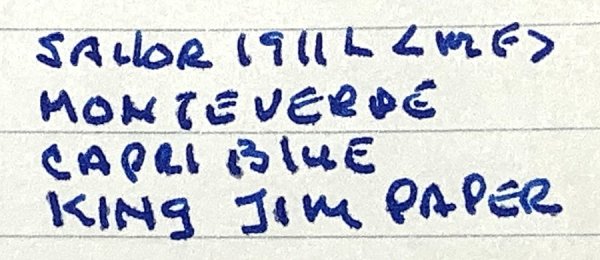 SAILOR 1911 L <MF>
MONTEVERDE
CAPRI BLUE
KING JIM PAPER